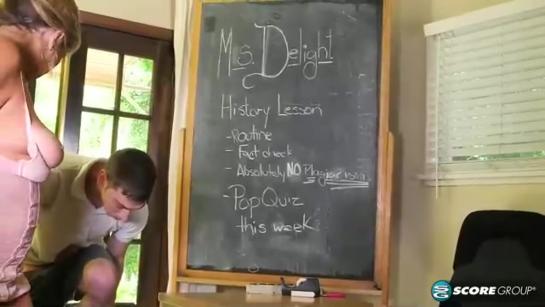 Ms. Delight
History Lesson
- Routine
- Fact check
- Absolutely NO Plagiarism
- Pop Quiz
this week
SCORE GROUP®